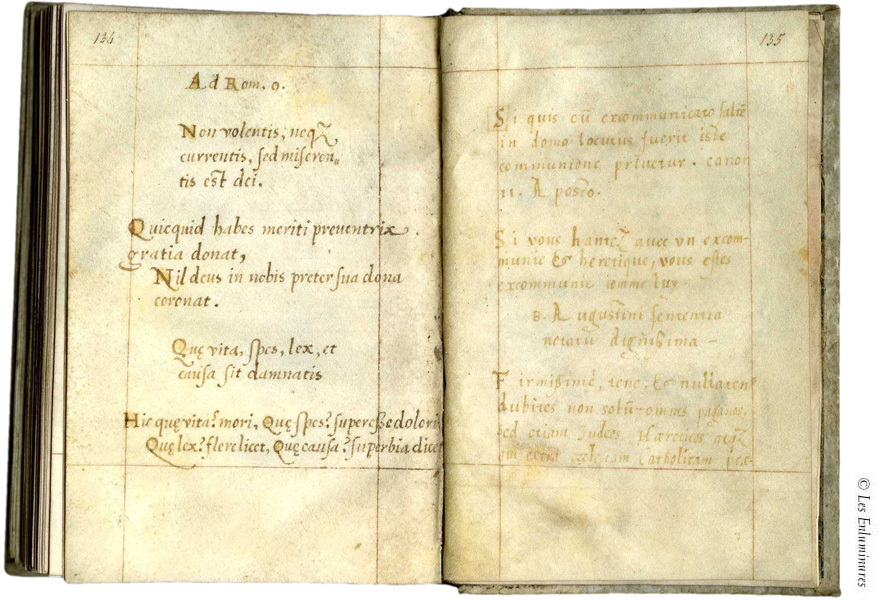 134
Ad Rom. 9.
Non volentis, neqȝ
currentis, sed miseren„
tis est dei.
Quicquid habes meriti preventrix
gratia donat,
Nil deus in nobis preter sua dona
coronat.
Quę vita, spes, lex, et
causa sit damnatis
Hic quę vita? mori, Quę spes? superesse dolori
Quę lex? flere licet, Quę causa? superbia dicet
135
Si quis cū excommunicato saltē
in domo locutus fuerit iste
communione privetur. canon
11. Aposto.
Si vous hantez avec un excom-
munie & heretique, vous estes
excommunie comme luy
B. Augustini sententia
notatu dignissima -
Firmissimè, tene, & nullaten9
dubites non solū omnes paganos,
sed etiam Judeos, Hæreticos atqȝ
ecclesiam Catholicam præ-
© Les Enluminures